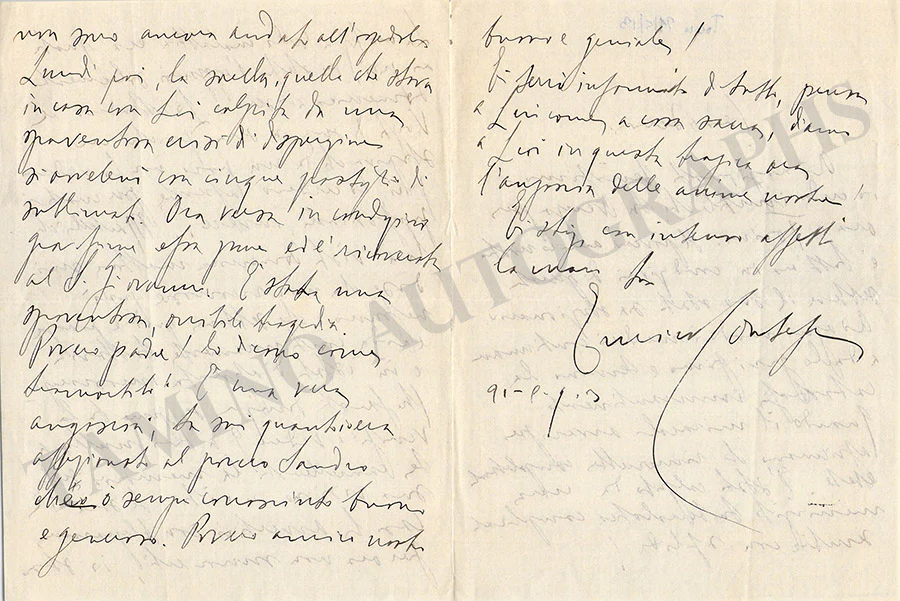 non sono ancora andato all'ospedale
Lunedì poi, la sorella, quella che stava
in casa con Lui colpita da una
spaventosa crisi di disperazione
si avvelenò con cinque pastiglie di
sublimato. Ora versa in condizioni
ed è ricoverata
al S. Giovanni. È stata una
spaventosa, orribile tragedia
Povero padre! lo diamo come
È una vera
angoscia, tu sai quant'ero
affezionato al povero Sandro
che ò sempre conosciuto buono
e generoso. Povero amico nostro
buono e geniale!
Ti terrò informato di tutto, pensa
a Lui come a cosa sacra, diamo
a Lui in questa tragica ora
l'angoscia delle anime nostre!
Ti stringo con intenso affetto
la mano tuo
Enrico
TAMINO AUTOGRAPHS